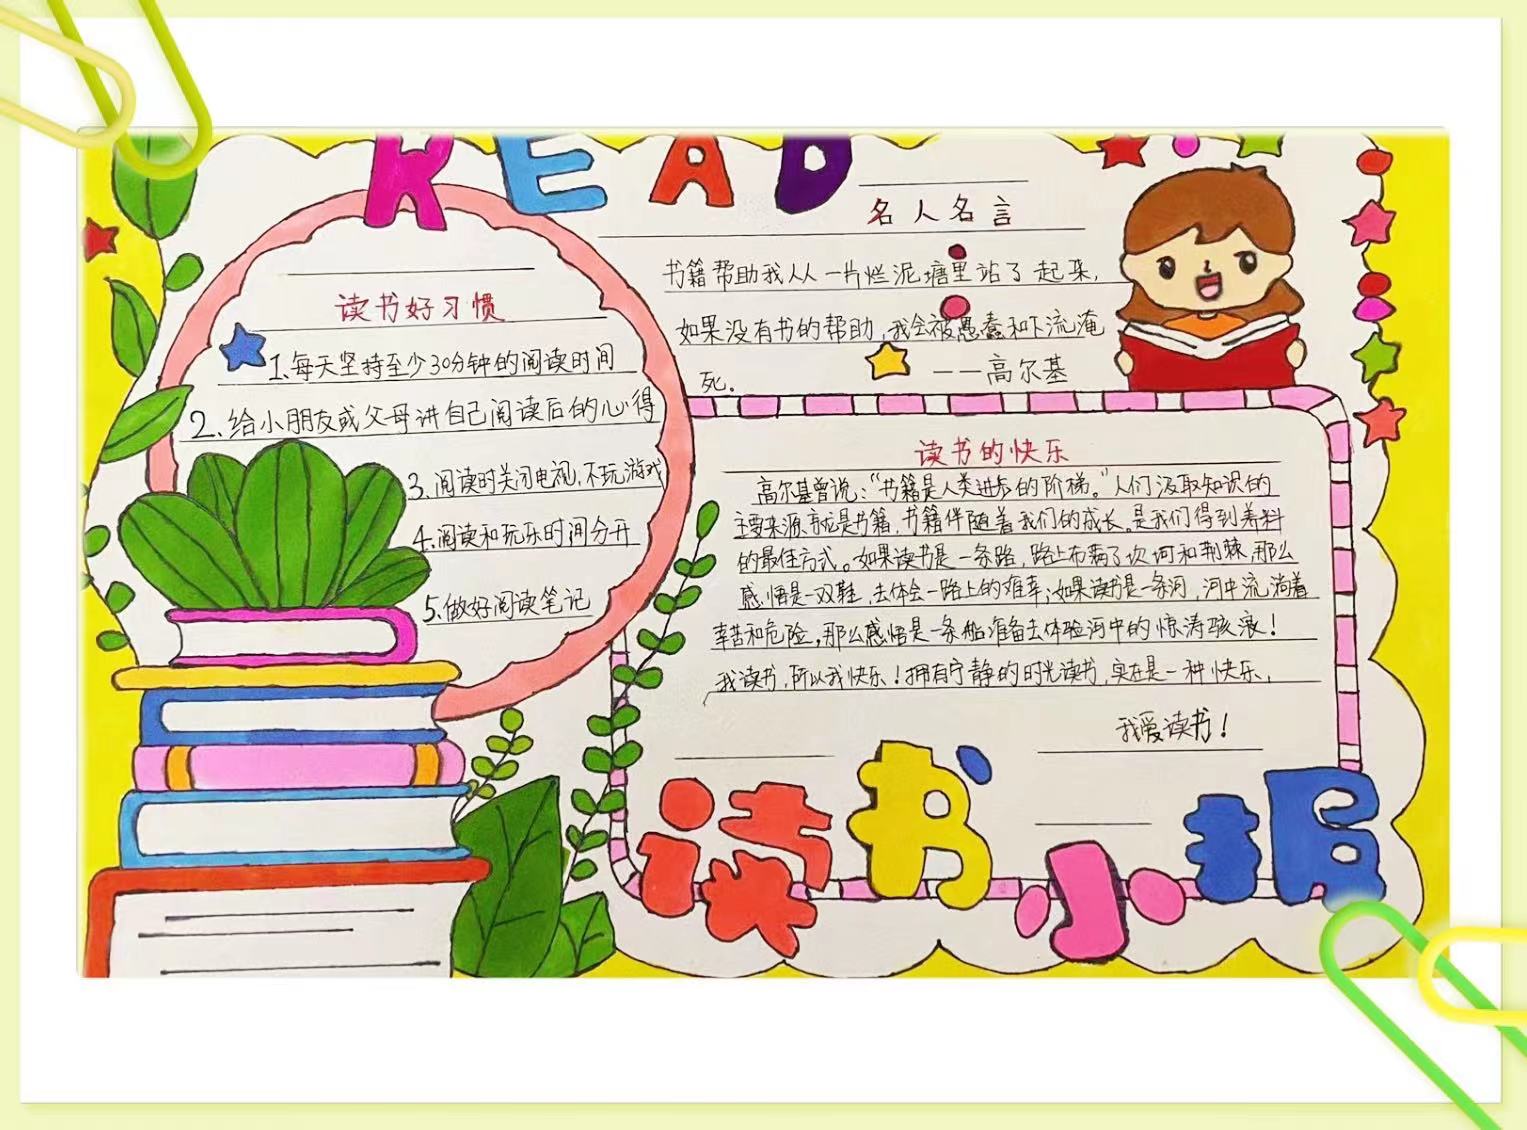 READ
读书好习惯
1.每天坚持至少30分钟的阅读时间
2.给小朋友或父母讲自己阅读后的心得
3.阅读时关闭电视,不玩游戏
4.阅读和玩乐时间分开
5.做好阅读笔记
名人名言
书籍帮助我从一片烂泥塘里站了起来,
如果没有书的帮助,我会被愚蠢和下流淹
死.
——高尔基
读书的快乐
高尔基曾说:“书籍是人类进步的阶梯。”人们汲取知识的
主要来源就是书籍,书籍伴随着我们的成长.是我们得到养料
的最佳方式。如果读书是一条路,路上布满了坎坷和荆棘,那么
感悟是一双鞋,去体会一路上的难辛;如果读书是一条河,河中流淌着
辛苦和危险,那么感悟是一条船准备去体验河中的惊涛骇浪!
我读书,所以我快乐!拥有宁静的时光读书,实在是一种快乐,
我爱读书!
读书小报